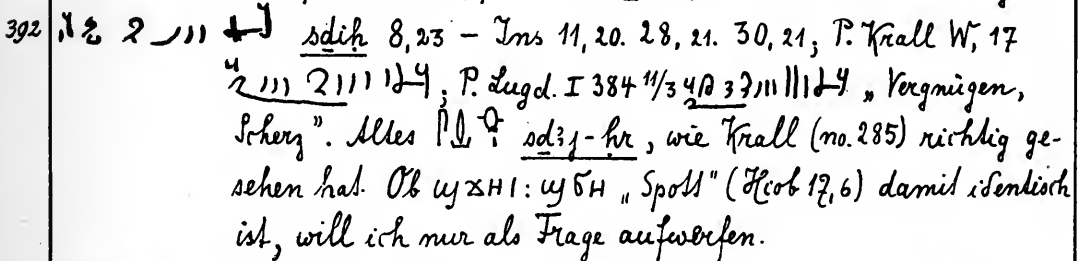 392 sdiḥ 8,23 – Ins 11,20. 28,21. 30,21; P. Krall W, 17
; P. Lugd. I 384 11/3 „Vergnügen,
Scherz". Altes sdꜣj-ḥr, wie Krall (no. 285) richtig ge-
sehen hat. Ob ϣϫΗΙ: ϣϭΗ „Spott" (Hiob 17,6) damit identisch
ist, will ich nur als Frage aufwerfen.